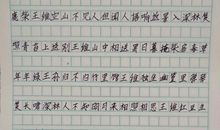 鹿柴王维空山不见人但闻人语响返景入深林复
照青苔上送别王维山中相送罢日暮掩柴扉春草
年年绿王孙归不归竹里馆王维独坐幽篁里弹琴
复长啸深林人不知明月来相照相思王维红豆生